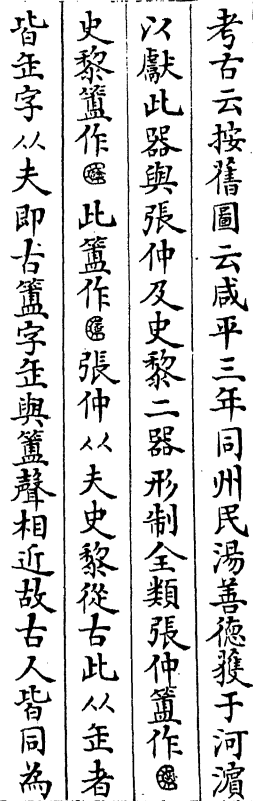 考古云按舊圖云咸平三年同州民湯善德獲于河濵
以獻此器與張仲及史黎二器形制全類張仲簠作
史黎簠作此簠作張仲从夫史黎從古此从𦈢者
皆𦈢字从夫即古簠字𦈢與簠聲相近故古人皆同為